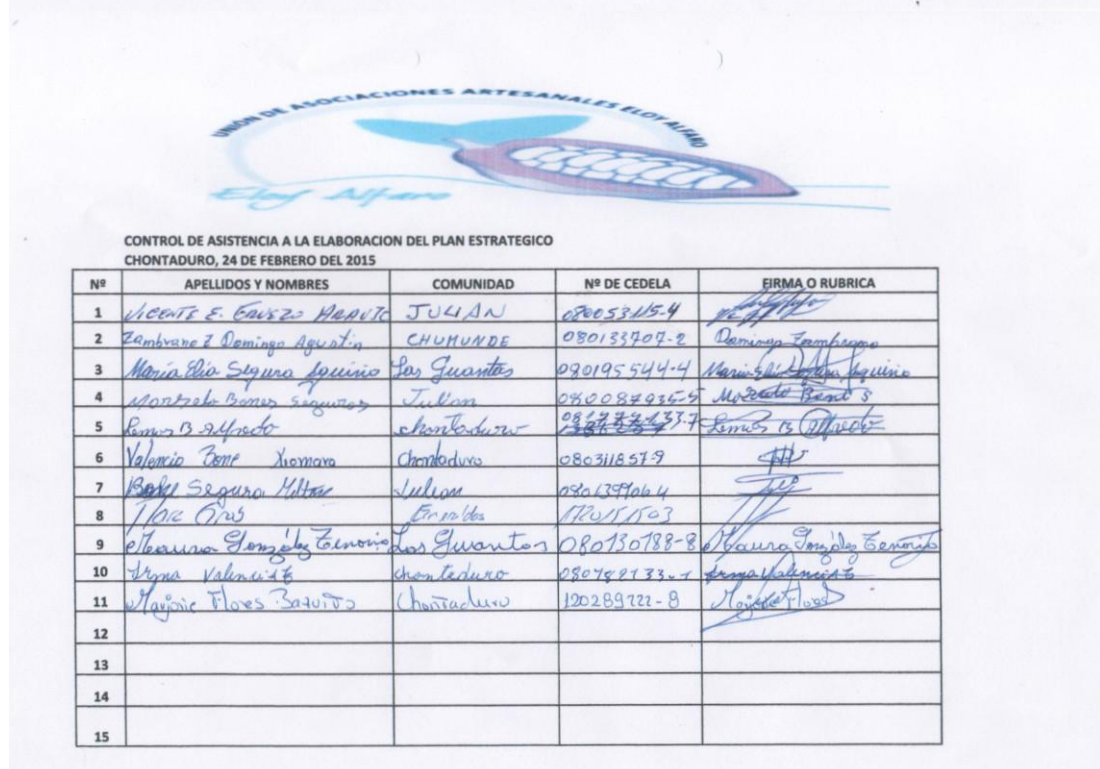 UNION DE ASOCIACIONES ARTESANALES ELOY ALFARO
Eloy Alfaro
CONTROL DE ASISTENCIA A LA ELABORACION DEL PLAN ESTRATEGICO
CHONTADURO, 24 DE FEBRERO DEL 2015
Nº APELLIDOS Y NOMBRES COMUNIDAD Nº DE CEDELA FIRMA O RUBRICA
1 VICENTE E. JULIAN 080053115-4
2 Zambrano Z Domingo Agustin CHUMUNDE 080133707-2 Domingo Zambrano
3 Maria Elia Segura Aquino Los Guantes 080195544-4 Maria Elia Segura Aquino
4 Marcelo Bones Julian
5 Lemos B Alfredo chontaduro Lemos B Alfredo
6 Valencia Bone Xiomara Chontaduro 080311857-9
7 Segura Julian
8
9 Maura González Tenorio Los Guantos 080130788-8 Maura González Tenorio
10 Irma Valencia chontaduro Irma Valencia
11 Marjorie Flores Chontaduro 120289222-8
12
13
14
15